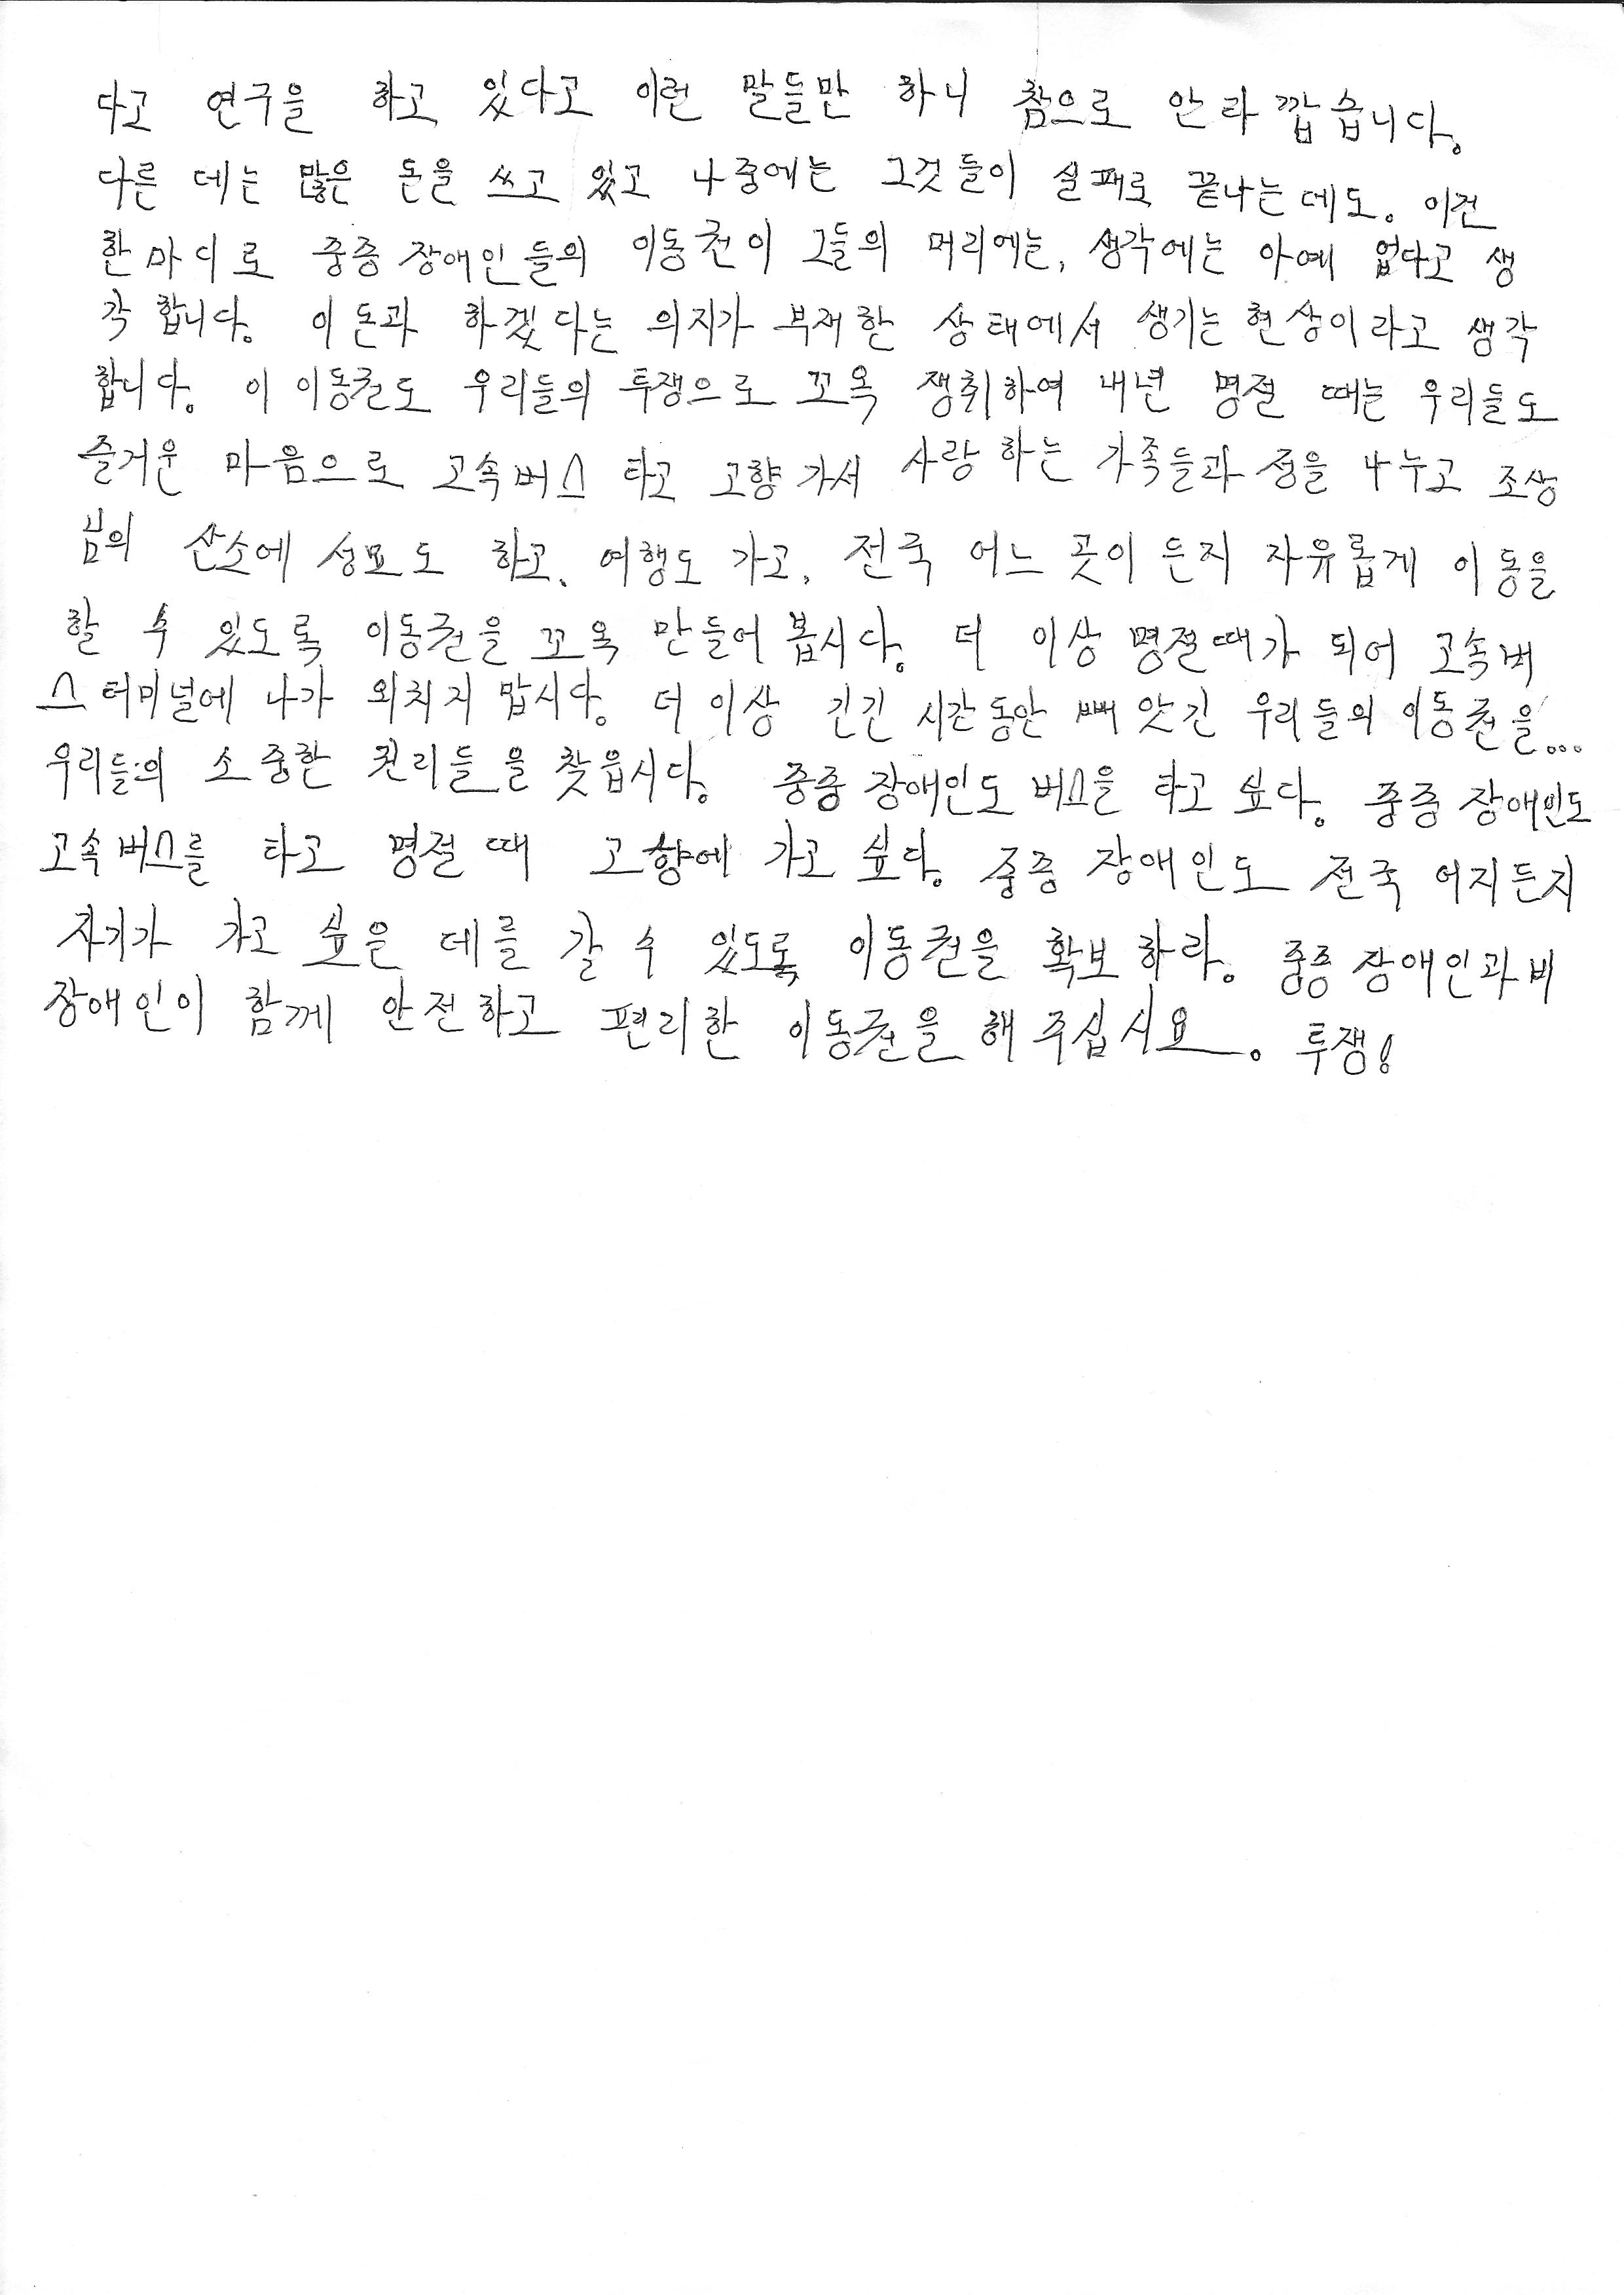 다고 연구을 하고 있다고 이런 말들만 하니 참으로 안라깝습니다.
다른 데는 많은 돈을 쓰고 있고 나중에는 그것들이 실패로 끝나는데도. 이건
한마디로 중증 장애인들의 이동권이 그들의 머리에는, 생각에는 아예 없다고 생
각 합니다. 이 돈과 하겠다는 의지가 부재한 상태에서 생기는 현상이라고 생각
합니다. 이 이동권도 우리들의 투쟁으로 꼬옥 쟁취하여 내년 명절 때는 우리들도
즐거운 마음으로 고속버스 타고 고향 가서 사랑하는 가족들과 정을 나누고 조상
님의 산소에 성묘도 하고, 여행도 가고, 전국 어느 곳이든지 자유롭게 이동을
할 수 있도록 이동권을 꼬옥 만들어 봅시다. 더 이상 명절때가 되어 고속버
스터미널에 나가 외치지 맙시다. 더 이상 긴긴 시간동안 빼앗긴 우리들의 이동권을...
우리들의 소중한 권리들을 찾읍시다. 중증 장애인도 버스을 타고 싶다. 중증 장애인도
고속버스를 타고 명절 때 고향에 가고 싶다. 중증 장애인도 전국 어지든지
자기가 가고 싶은 데를 갈 수 있도록 이동권을 확보하라. 중증 장애인과 비
장애인이 함께 안전하고 편리한 이동권을 해 주십시요. 투쟁!